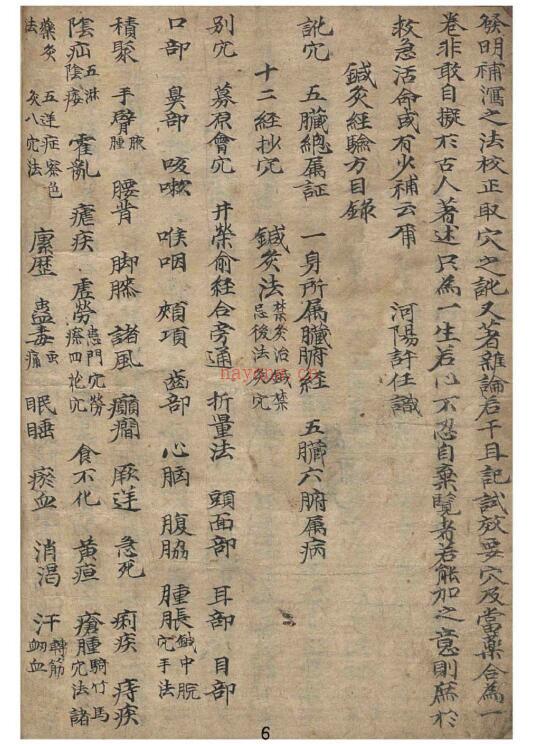 發明補瀉之法校正取穴之訛又著雜論若干且記試效要穴及當藥合為一
卷非敢自擬於古人著述只為一生苦心不忍自棄覽者若能加之意則庶於
救急活命或有少補云爾 河陽許任識
鍼灸經驗方目錄
訛穴 五臟總属証 一身所属臟腑經 五臟六腑属病
十二經抄穴 鍼灸法
別穴 募原會穴 井荣俞經合旁通 折量法 頭面部 耳部 目部
口部 鼻部 咳嗽 喉咽 頰項 齒部 心胸 腹脇 腫脹 鍼中脘穴手法
積聚 手臂 腋腫 腰背 脚膝 諸風 癲癇 厥逆 急死 痢疾 痔疾
陰疝 五淋陰痿 霍亂 瘧疾 虛勞 食不化 黃疸 瘡腫 騎竹馬穴法諸
藥灸法 五逆症察色灸八穴法 瘰癧 蠱毒 眠睡 瘀血 消渴 汗 轉筋衂血
nayona.cn
6